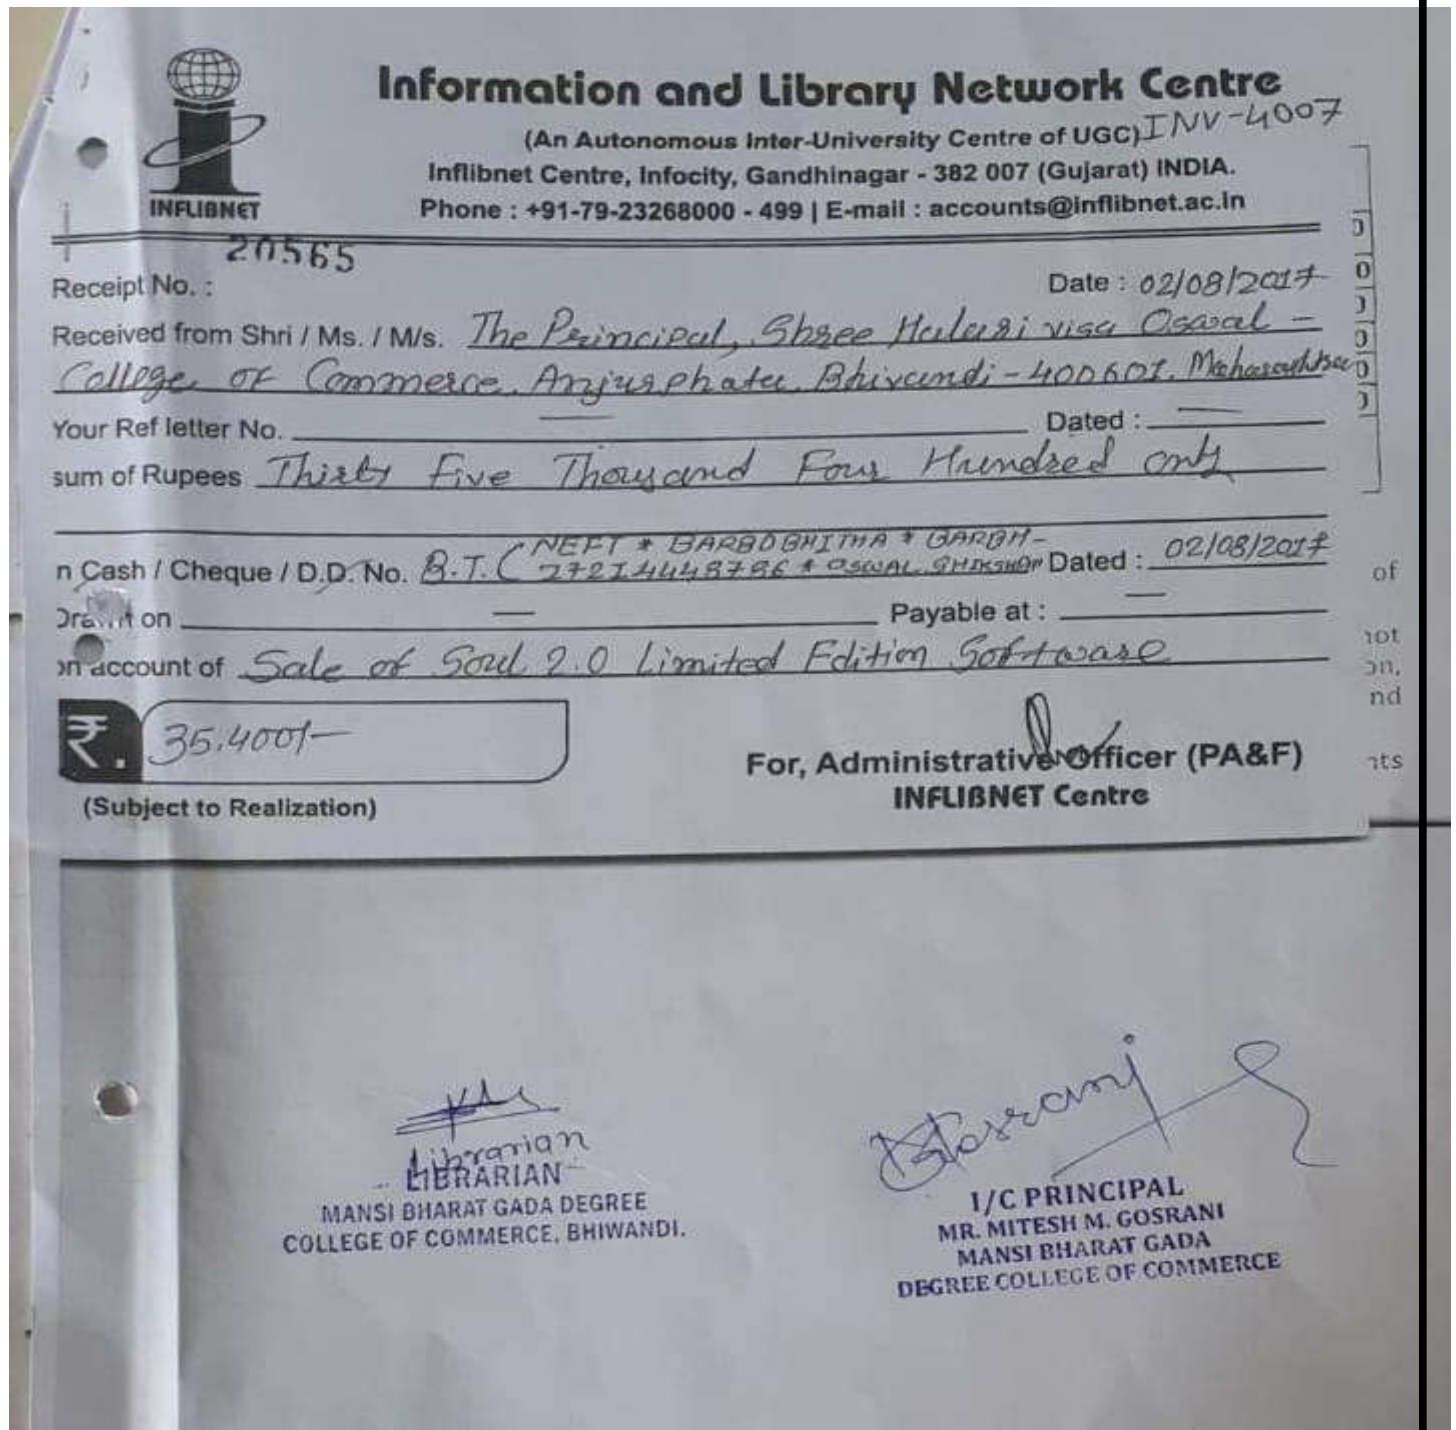 Information and Library Network Centre
(An Autonomous Inter-University Centre of UGC) INV-4007
Inflibnet Centre, Infocity, Gandhinagar - 382 007 (Gujarat) INDIA.
INFLIBNET
Phone : +91-79-23268000 - 499 | E-mail : accounts@inflibnet.ac.in
20565
Receipt No. :
Date : 02/08/2017
Received from Shri / Ms. / M/s. The Principal, Shree Halari visa Oswal -
College of Commerce, Anjurphata, Bhivandi - 400601. Maharashtra
Your Ref letter No. — Dated : —
sum of Rupees Thirty Five Thousand Four Hundred only
n Cash / Cheque / D.D. No. B.T. ( NEFT *
Dated : 02/08/2017
on — Payable at : —
on account of Sale of Soul 2.0 Limited Edition Software
₹. 35,400/-
(Subject to Realization)
For, Administrative Officer (PA&F)
INFLIBNET Centre
of
not
on,
nd
nts
Librarian
LIBRARIAN
MANSI BHARAT GADA DEGREE
COLLEGE OF COMMERCE, BHIWANDI.
I/C PRINCIPAL
MR. MITESH M. GOSRANI
MANSI BHARAT GADA
DEGREE COLLEGE OF COMMERCE